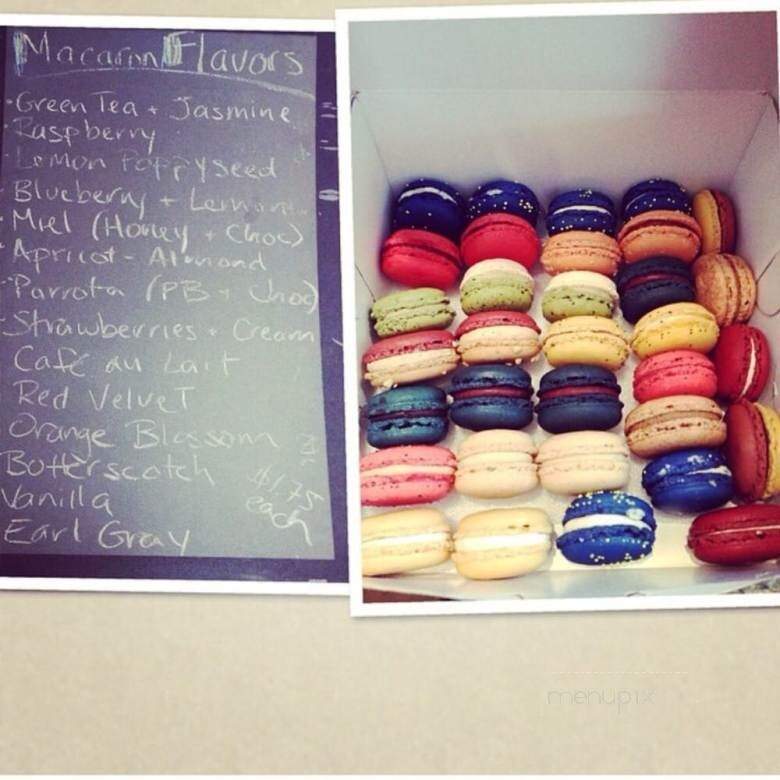 Macaron Flavors
• Green Tea + Jasmine
• Raspberry
• Lemon Poppyseed
Blueberry + Lemon
• Miel (Honey + Choc)
• Apricot - Almond
• Parrota (PB + Choc)
• Strawberries + Cream
Café au Lait
Red Velvet
Orange Blossom
Botterscotch
Vanilla
Earl Gray
$1.75
each
menupix